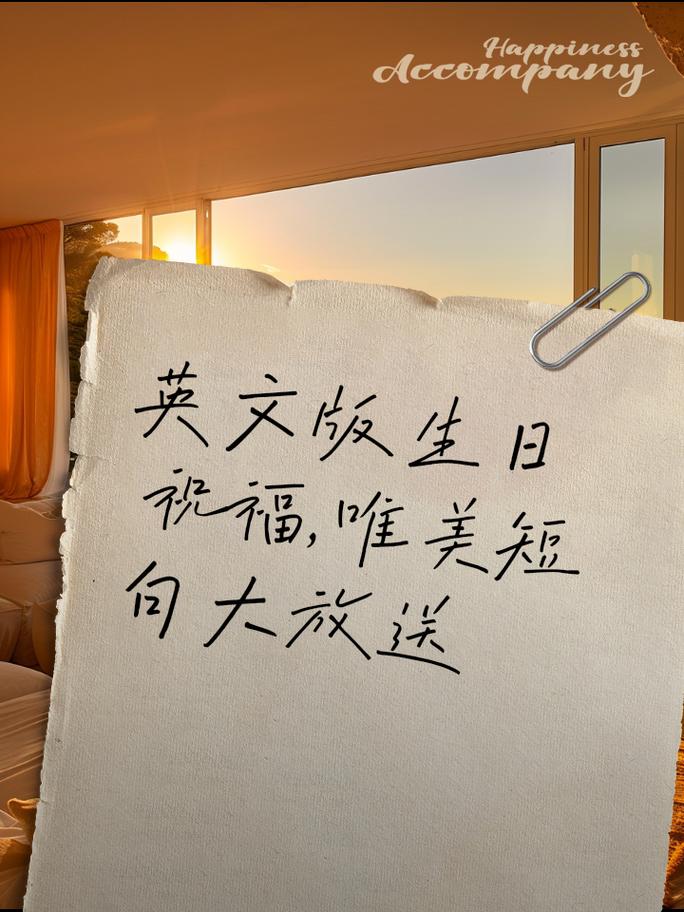 Happiness
Accompany
英文版生日
祝福,唯美短
句大放送